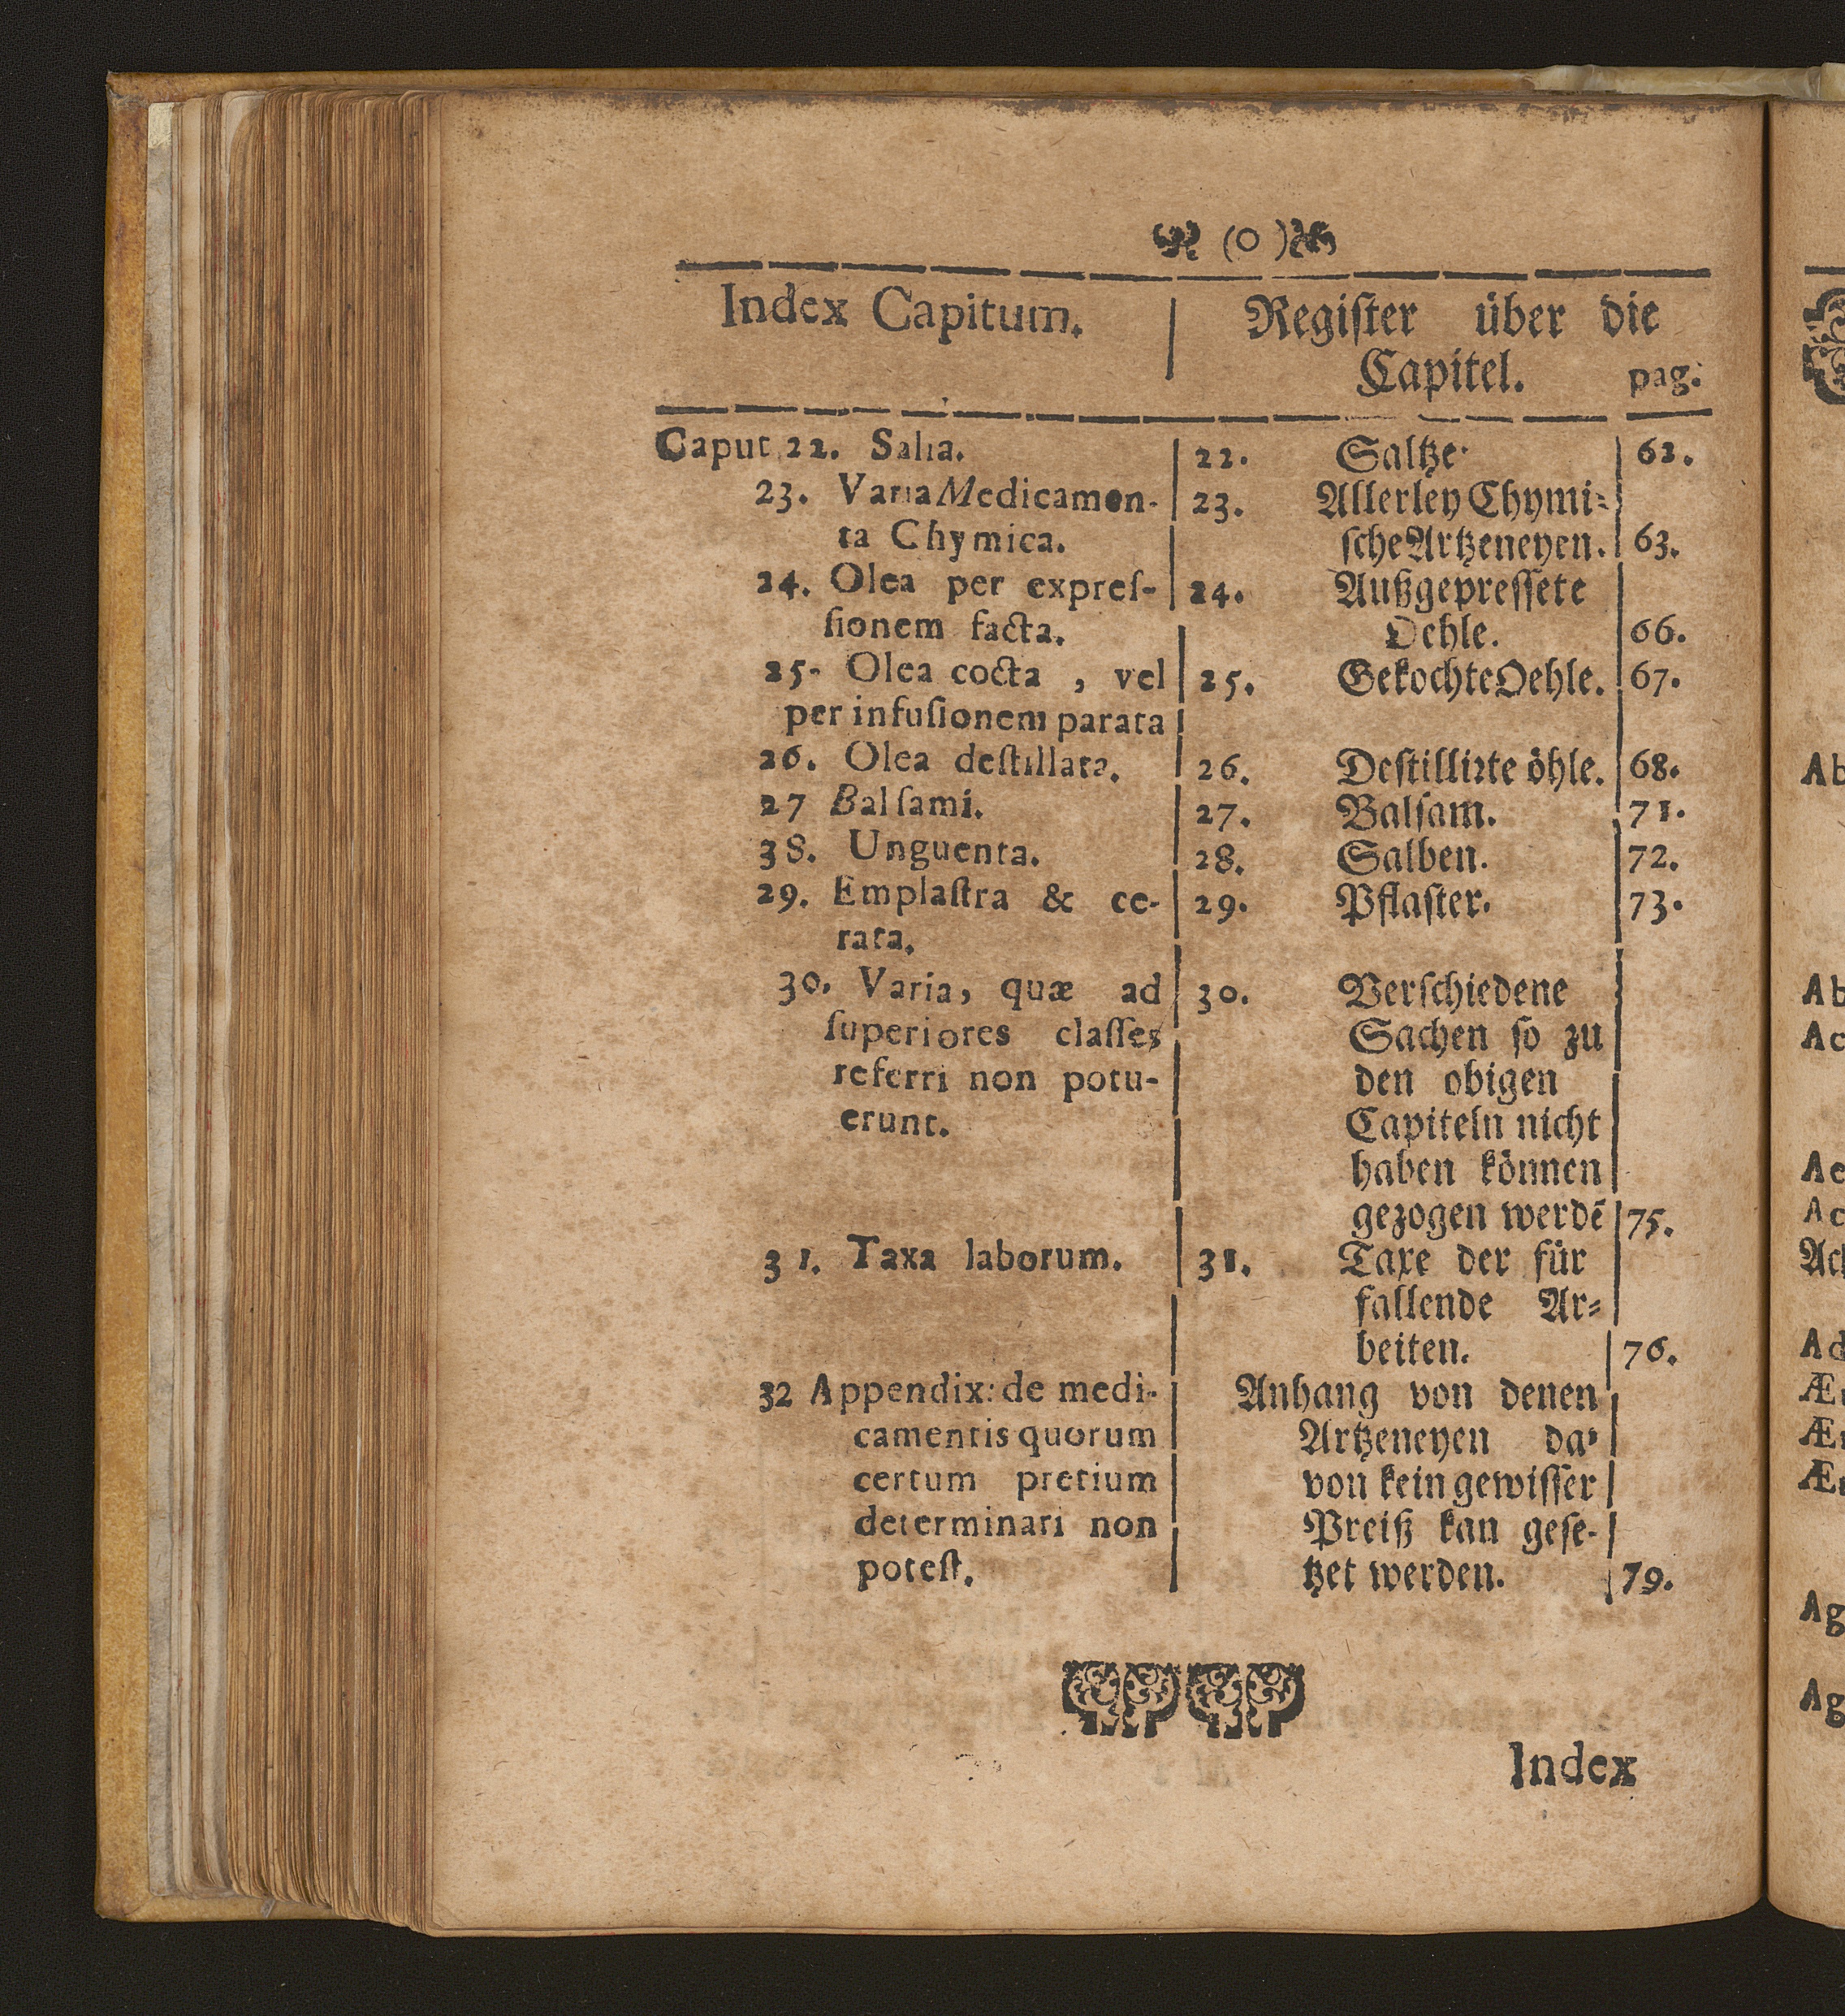 (O)
Index Capitum. Regiſter über die
Capitel. pag.
Caput 22. Salia. 22. Saltze. 62.
23. Varia Medicamen- 23. Allerley Chymi-
ta Chymica. ſche Artzeneyen. 63.
24. Olea per expreſ- 24. Außgepreſſete
ſionem facta. Oehle. 66.
25. Olea cocta, vel 25. Gekochte Oehle. 67.
per infuſionem parata
26. Olea deſtillata. 26. Deſtillirte öhle. 68.
27 Balſami. 27. Balſam. 71.
38. Unguenta. 28. Salben. 72.
29. Emplaſtra & ce- 29. Pflaſter. 73.
rata.
30. Varia, quæ ad 30. Verſchiedene
ſuperiores claſſes Sachen ſo zu
referri non potu- den obigen
erunt. Capiteln nicht
haben können
gezogen werdē 75.
31. Taxa laborum. 31. Taxe der für
fallende Ar-
beiten. 76.
32 Appendix: de medi- Anhang von denen
camentis quorum Artzeneyen da-
certum pretium von kein gewiſſer
determinari non Preiß kan geſe-
poteſt. tzet werden. 79.
Index
Ab
Ab
Ac
Ae
Ac
Ad
Ag
Ag